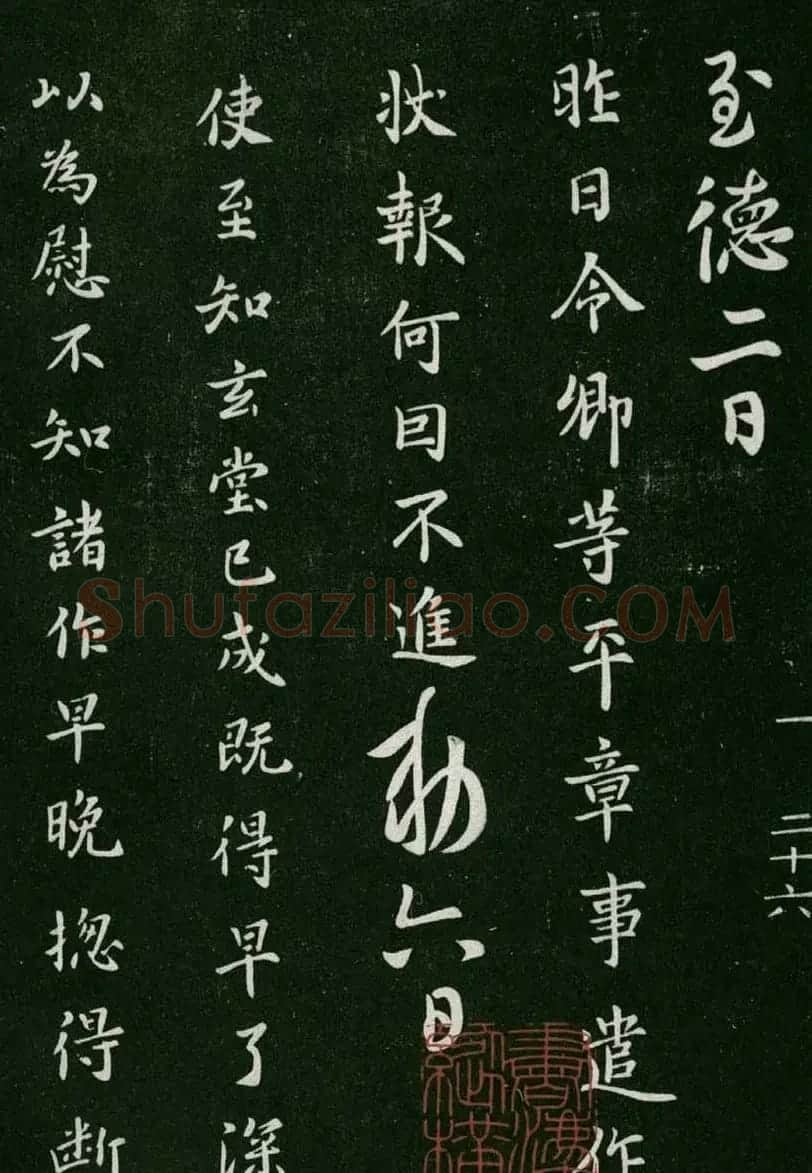 至德二日
昨日令卿等平章事遣作
状報何囙不進勅六日
使至知玄堂已成既得早了深
以為慰不知諸作早晚揔得断
一 二十六
Shufaziliao.COM
書法